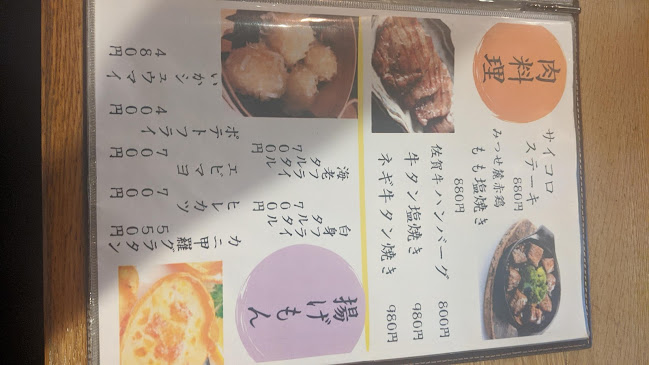 肉料理
サイコロ
ステーキ
880円
みつせ麓赤鶏
もも塩焼き
880円
佐賀牛ハンバーグ 800円
牛タン塩焼き 980円
ネギ牛タン焼き 980円
揚げもん
海老フライ
タルタル
700円
白身フライ
タルタル
700円
いかシュウマイ
480円
ポテトフライ
400円
エビマヨ
700円
ヒレカツ
700円
カニ甲羅グラタン
550円